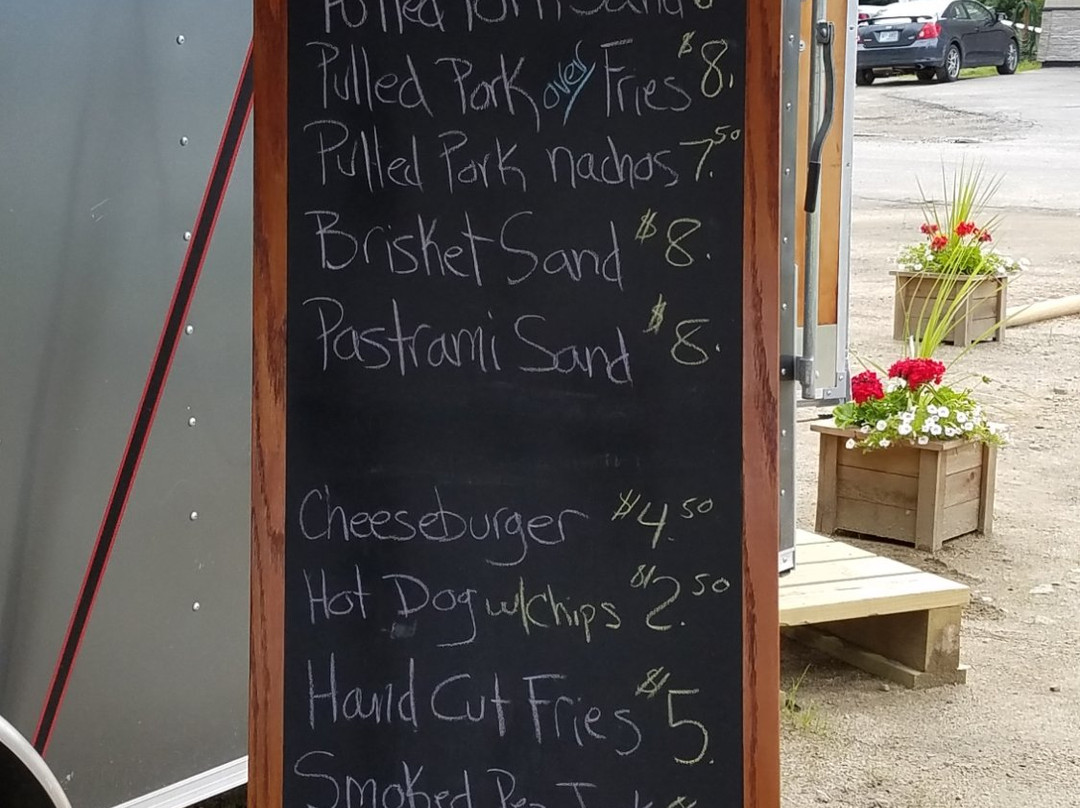 Pulled Pork Sand
Pulled Pork over Fries $8.
Pulled Pork nachos 7.50
Brisket Sand $8.
Pastrami Sand $8.
Cheeseburger $4.50
Hot Dog w/chips $2.50
Hand Cut Fries $5.
Smoked